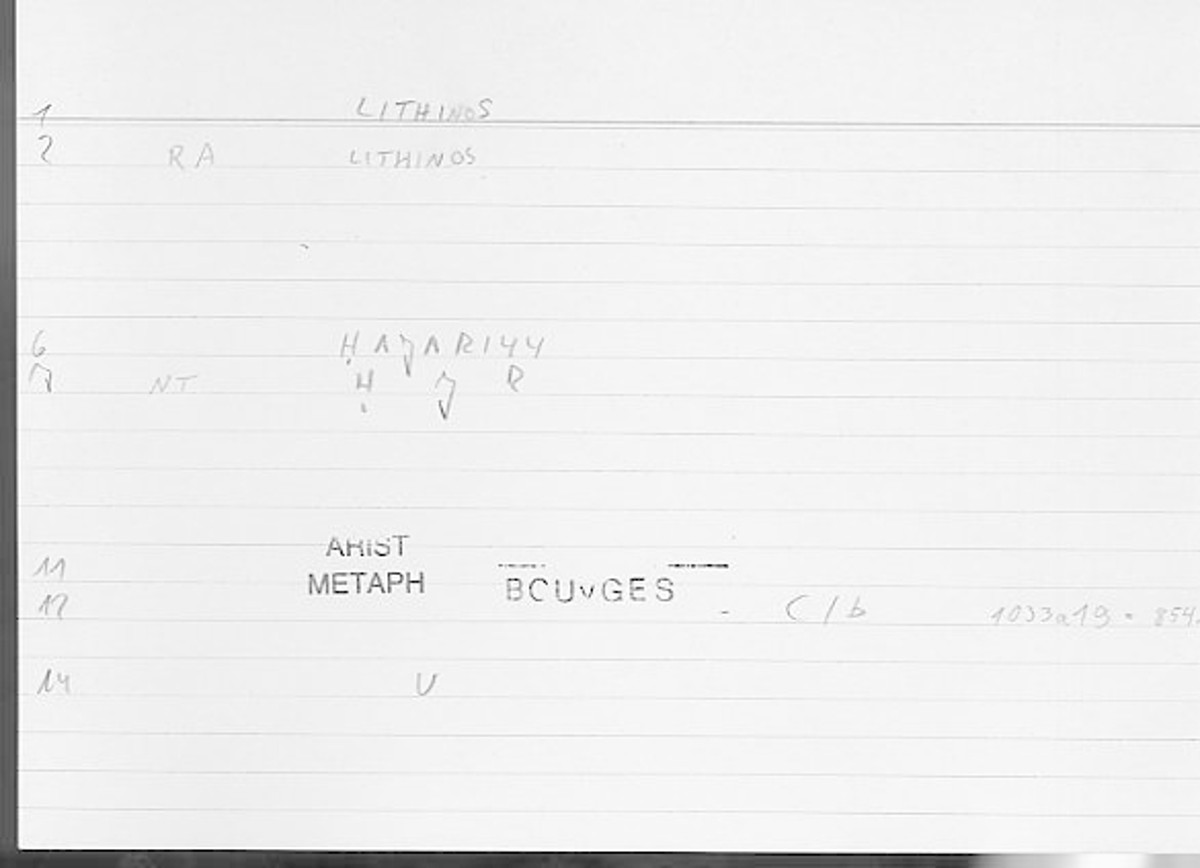 1 LITHINOS
2 RA LITHINOS
6 ḤAǦARIYY
7 NT Ḥ Ǧ R
ARIST
11
METAPH BOUYGES
12 - C/b 1033a19 = 854,
14 U